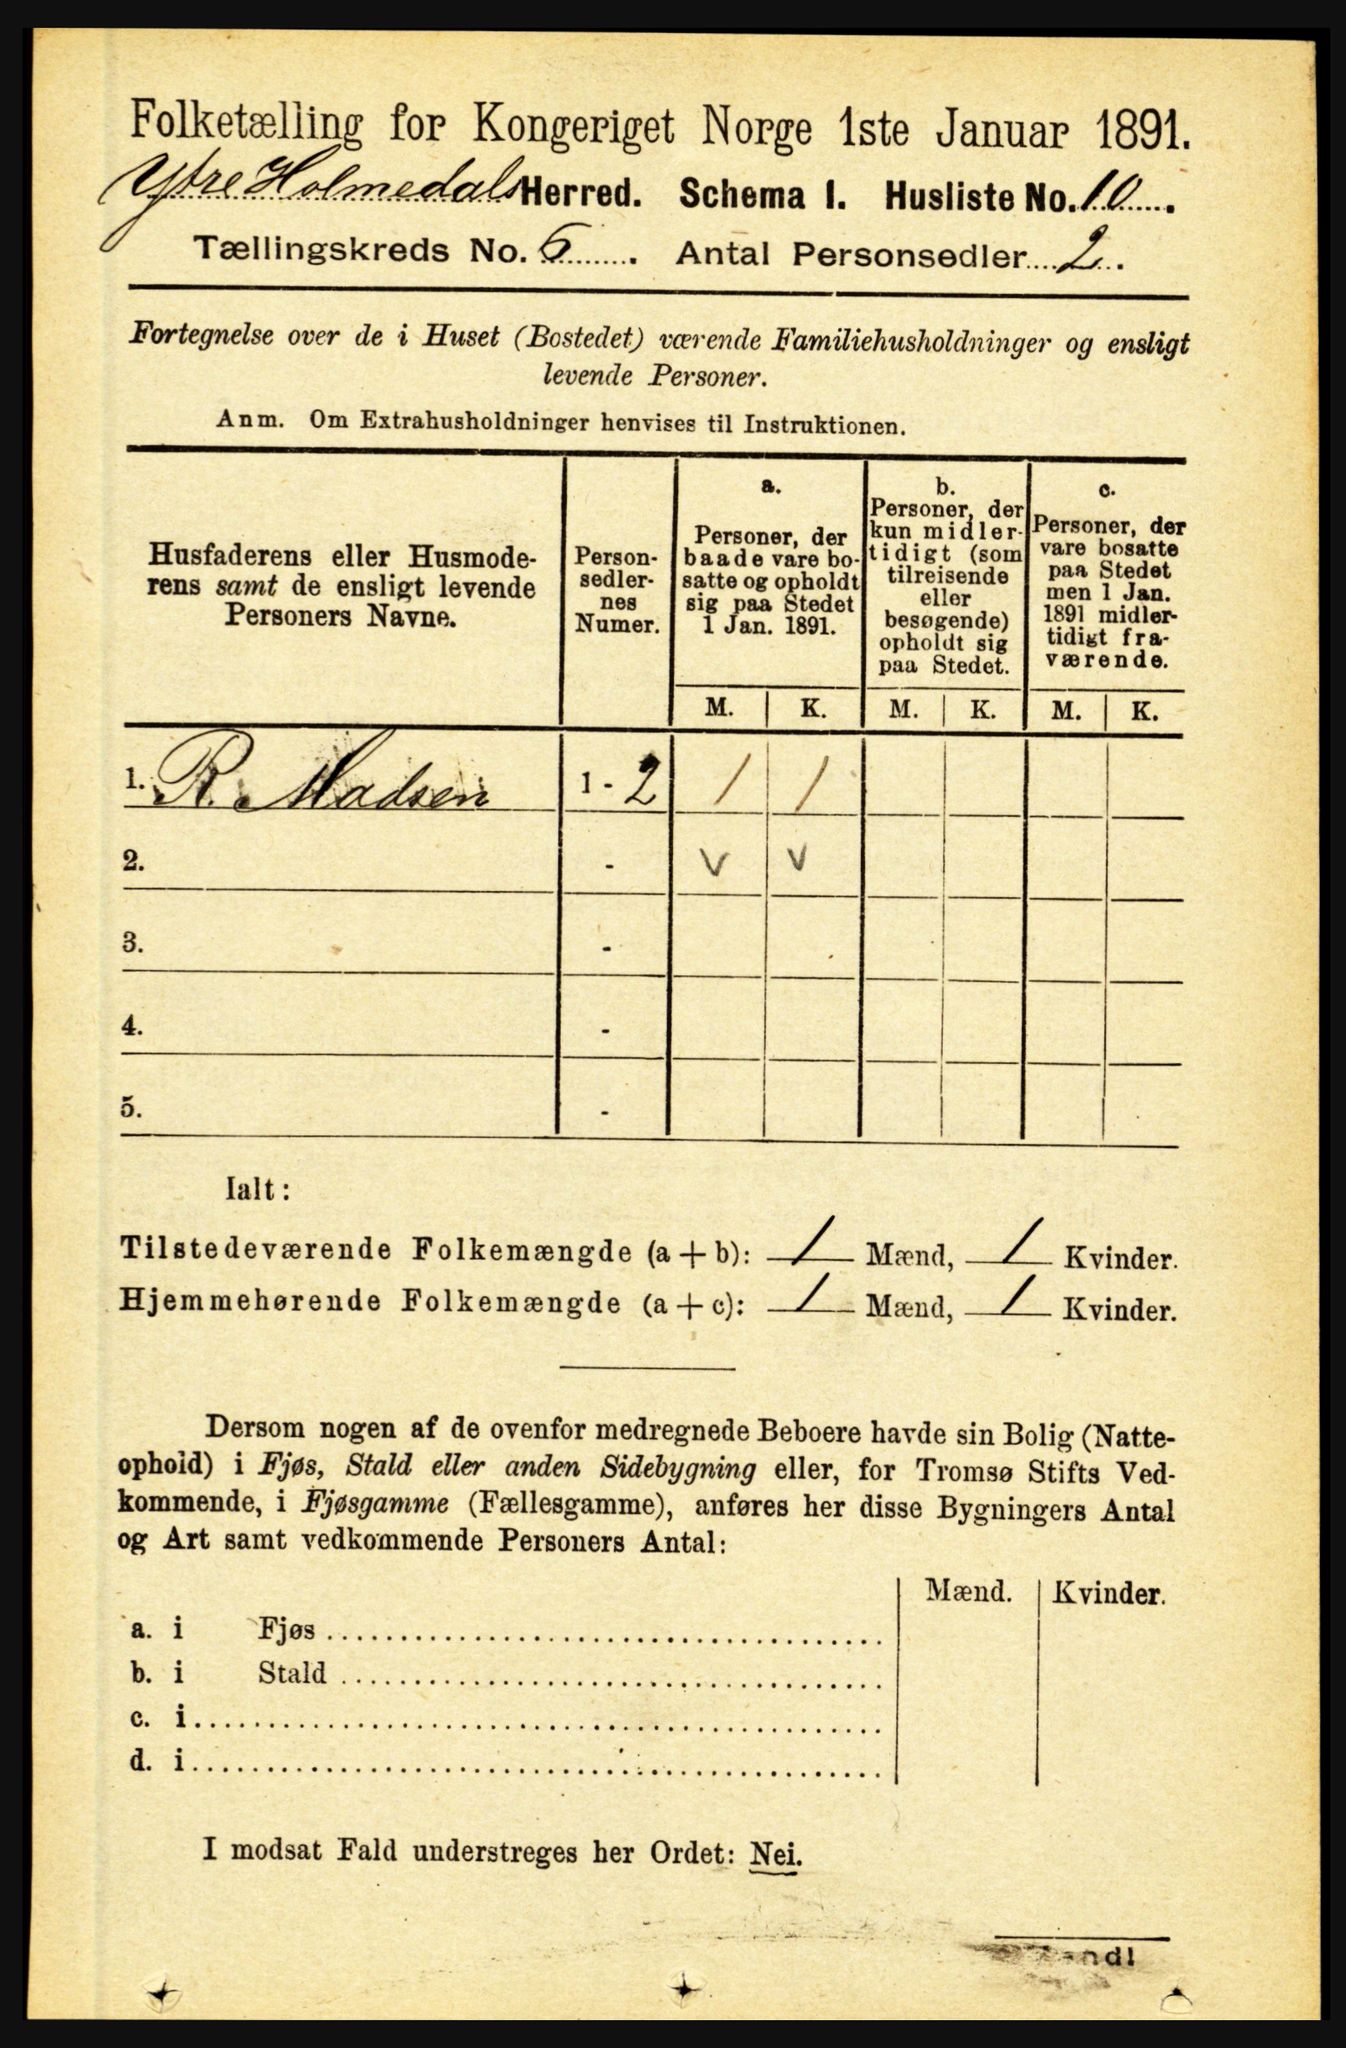 Folketælling for Kongeriget Norge 1ste Januar 1891.
Ytre Holmedals Herred. Schema I. Husliste No. 10.
Tællingskreds No. 6. Antal Personsedler 2.
Fortegnelse over de i Huset (Bostedet) værende Familiehusholdninger og ensligt
levende Personer.
Anm. Om Extrahusholdninger henvises til Instruktionen.
Husfaderens eller Husmode-
rens samt de ensligt levende
Personers Navne.
Person-
sedler-
nes
Numer.
a.
Personer, der
baade vare bo-
satte og opholdt
sig paa Stedet
1 Jan. 1891.
b.
Personer, der
kun midler-
tidigt (som
tilreisende
eller
besøgende)
opholdt sig
paa Stedet.
c.
Personer, der
vare bosatte
paa Stedet
men 1 Jan.
1891 midler-
tidigt fra-
værende.
M. K. M. K. M. K.
1. R. Madsen 1 - 2 1 1
2. - v v
3. -
4. -
5. -
Ialt:
Tilstedeværende Folkemængde (a + b): 1 Mænd, 1 Kvinder.
Hjemmehørende Folkemængde (a + c): 1 Mænd, 1 Kvinder.
Dersom nogen af de ovenfor medregnede Beboere havde sin Bolig (Natte-
ophold) i Fjøs, Stald eller anden Sidebygning eller, for Tromsø Stifts Ved-
kommende, i Fjøsgamme (Fællesgamme), anføres her disse Bygningers Antal
og Art samt vedkommende Personers Antal:
Mænd. Kvinder.
a. i Fjøs
b. i Stald
c. i
d. i
I modsat Fald understreges her Ordet: Nei.